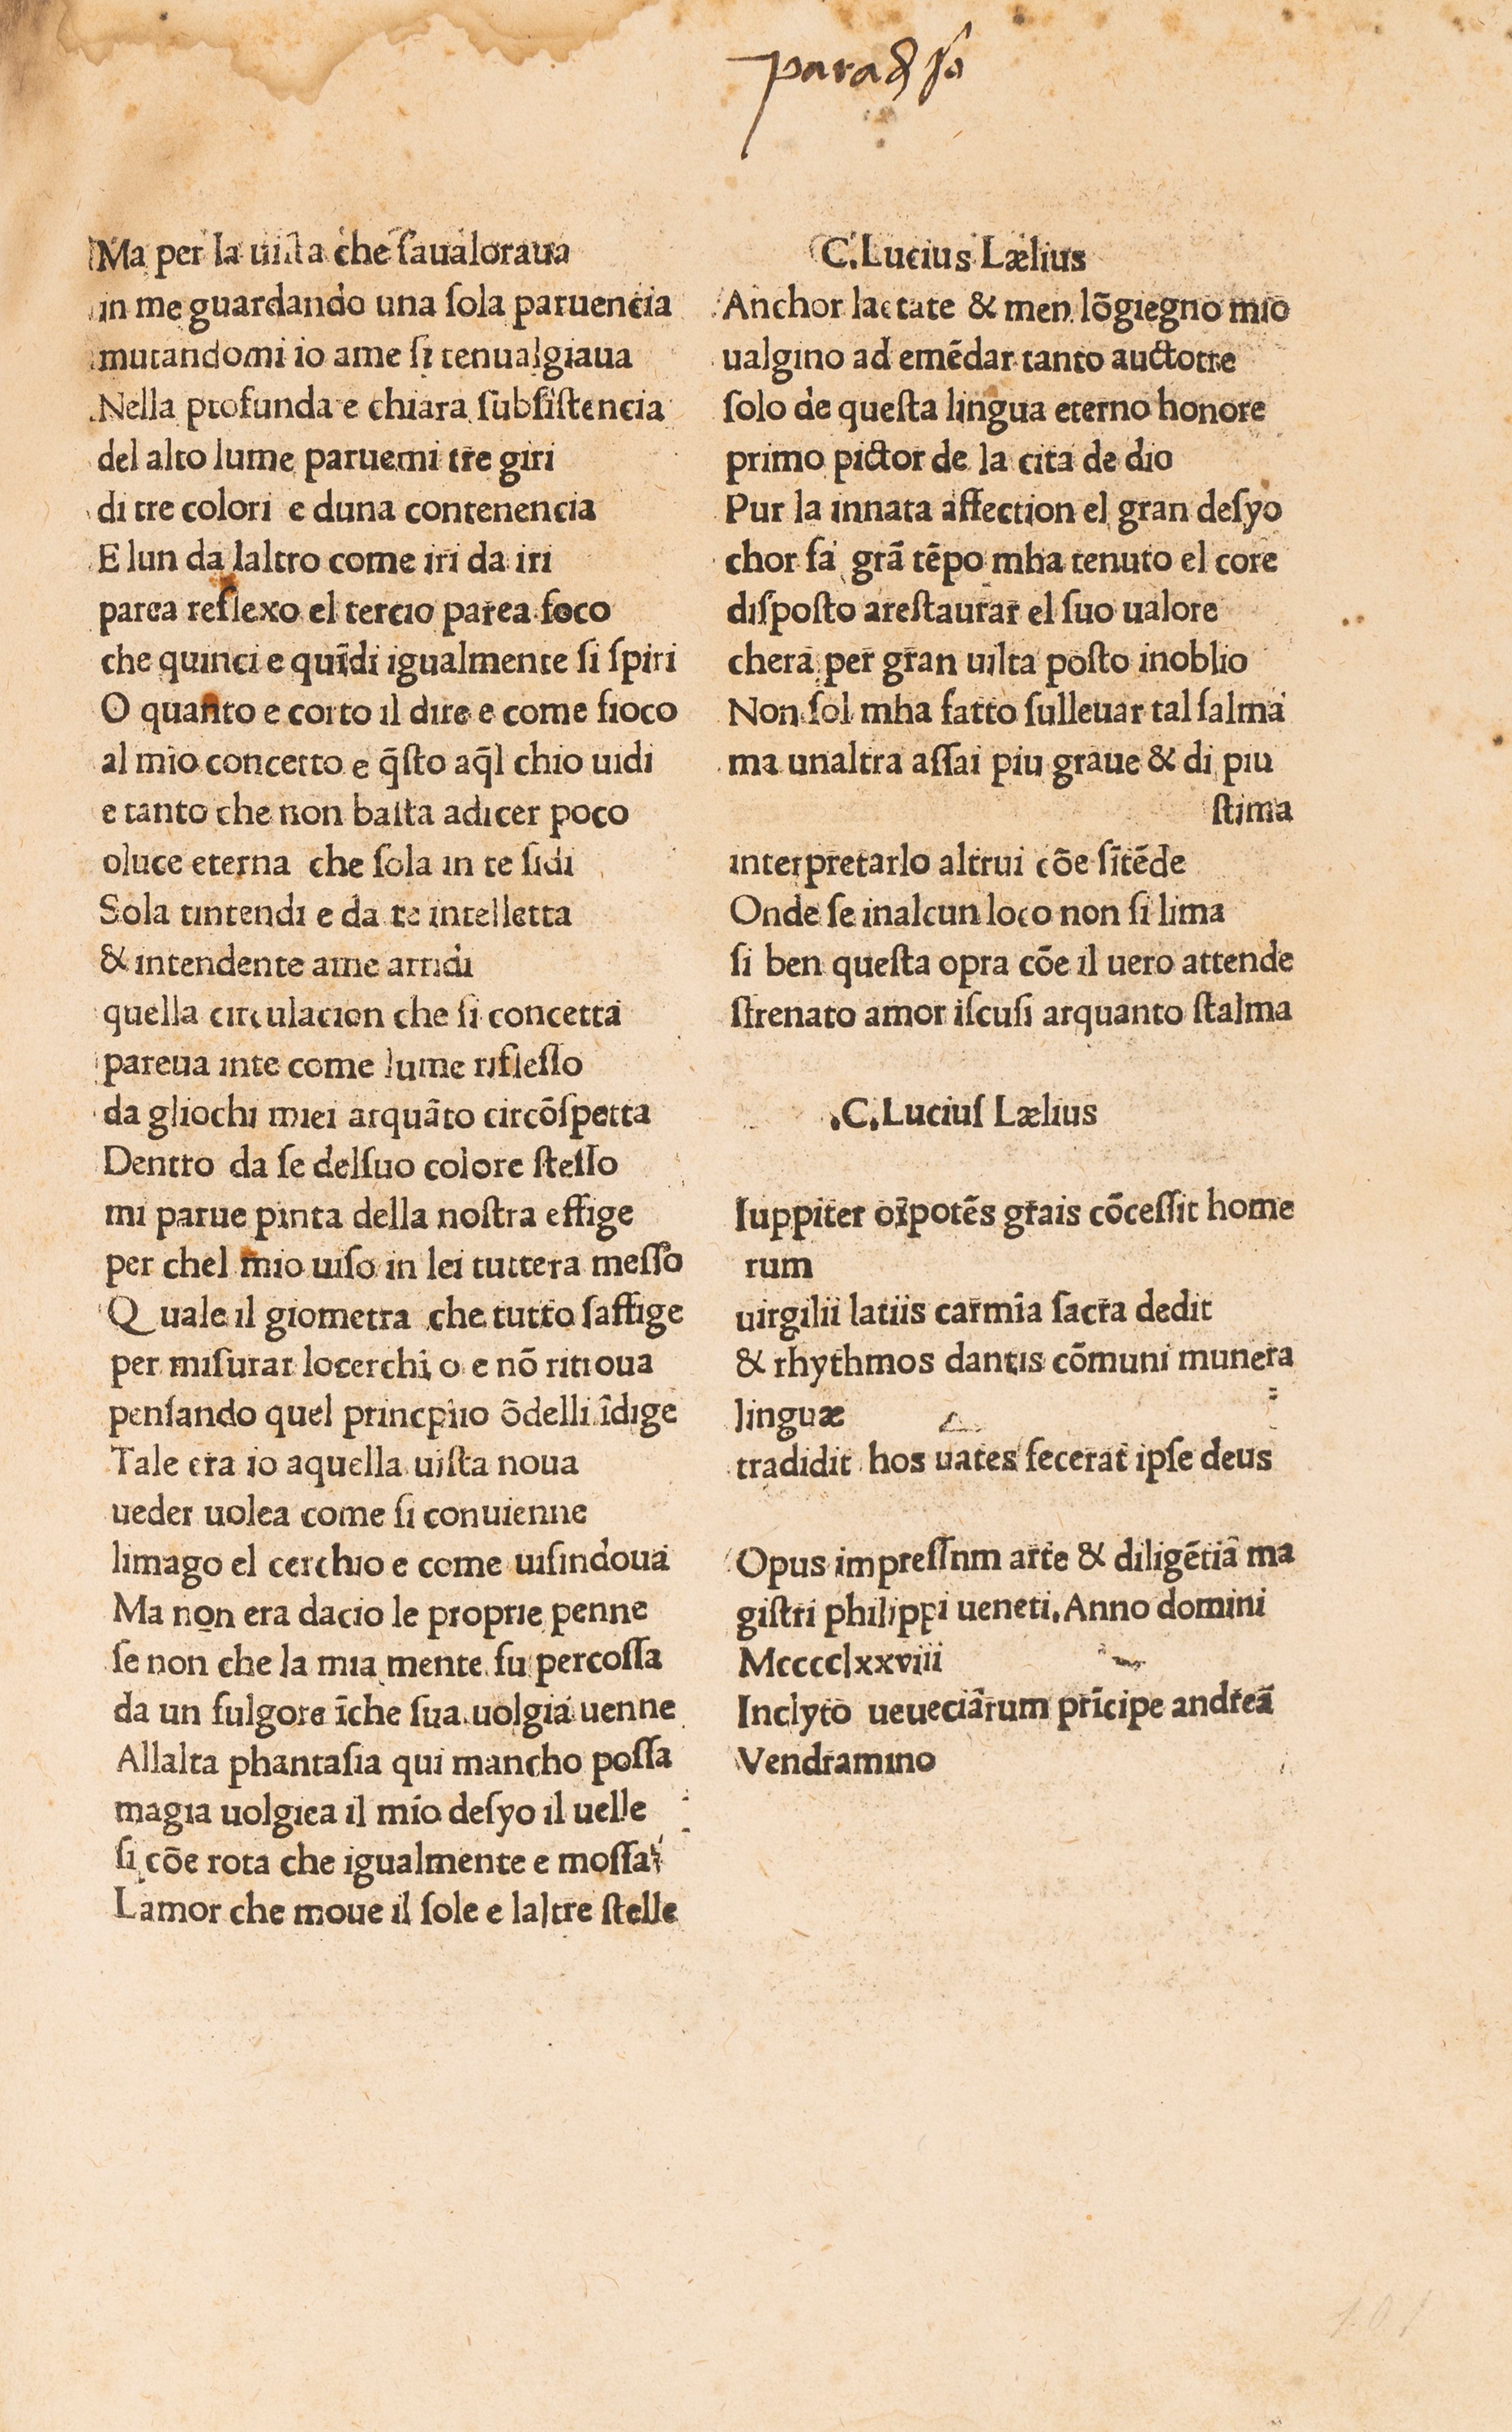 paradiso
Ma per la uista che ſaualoraua
in me guardando una ſola paruencia
mutandomi io ame ſi tenualgiaua
Nella profunda e chiara ſubſiſtencia
del alto lume paruemi tre giri
di tre colori e duna contenencia
E lun da laltro come iri da iri
parea reflexo el tercio parea foco
che quinci e quīdi igualmente ſi ſpiri
O quanto e corto il dire e come fioco
al mio concetto e q̄ſto aq̄l chio uidi
e tanto che non baſta adicer poco
oluce eterna che ſola in te ſidi
Sola tintendi e da te intelletta
& intendente ame arridi
quella circulacion che ſi concetta
pareua inte come lume rifleſſo
da gliochi miei arquāto circōſpetta
Dentro da ſe delſuo colore ſteſſo
mi parue pinta della noſtra effige
per chel mio uiſo in lei tuttera meſſo
Quale il giometra che tutto ſaffige
per miſurar locerchi o e nō ritroua
penſando quel princpiio ōdelli īdige
Tale era io aquella uiſta noua
ueder uolea come ſi conuienne
limago el cerchio e come uiſindoua
Ma non era dacio le proprie penne
ſe non che la mia mente fu percoſſa
da un fulgore īche ſua uolgia uenne
Allalta phantaſia qui mancho poſſa
magia uolgiea il mio deſyo il uelle
ſi cōe rota che igualmente e moſſa
Lamor che moue il ſole e laltre ſtelle
C.Lucius Lælius
Anchor lactate & men lōgiegno mio
ualgino ad emēdar tanto auctorre
ſolo de queſta lingua eterno honore
primo pictor de la cita de dio
Pur la innata affection el gran deſyo
chor fa grā tēpo mha tenuto el core
diſpoſto areſtaurar el ſuo ualore
chera per gran uilta poſto inoblio
Non ſol mha fatto ſulleuar tal ſalma
ma unaltra aſſai piu graue & di piu
ſtima
interpretarlo altrui cōe ſītēde
Onde ſe inalcun loco non ſi lima
ſi ben queſta opra cōe il uero attende
ſfrenato amor iſcuſi arquanto ſtalma
.C.Luciuſ Lælius
Iuppiter oīpotēs grais cōceſſit home
rum
uirgilii latiis carmīa ſacra dedit
& rhythmos dantis cōmuni munera
linguæ
tradidit hos uates fecerat ipſe deus
Opus impreſſnm arte & diligētiā ma
giſtri philippi ueneti.Anno domini
Mcccclxxviii
Inclyto ueueciārum prīcipe andreā
Vendramino